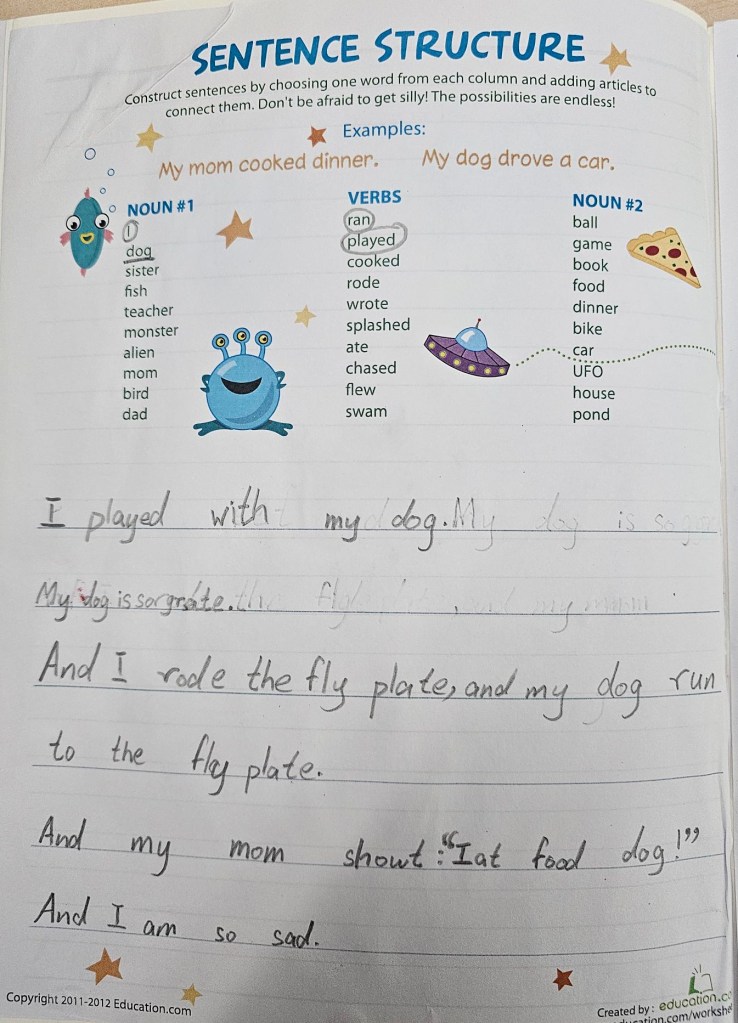 SENTENCE STRUCTURE
Construct sentences by choosing one word from each column and adding articles to
connect them. Don't be afraid to get silly! The possibilities are endless!
Examples:
My mom cooked dinner. My dog drove a car.
NOUN #1
I
dog
sister
fish
teacher
monster
alien
mom
bird
dad
VERBS
ran
played
cooked
rode
wrote
splashed
ate
chased
flew
swam
NOUN #2
ball
game
book
food
dinner
bike
car
UFO
house
pond
I played with my dog. My dog is so
My dog is so grate.
And I rode the fly plate, and my dog run
to the fly plate.
And my mom showt: "I at food dog!"
And I am so sad.
Copyright 2011-2012 Education.com
Created by: education.c